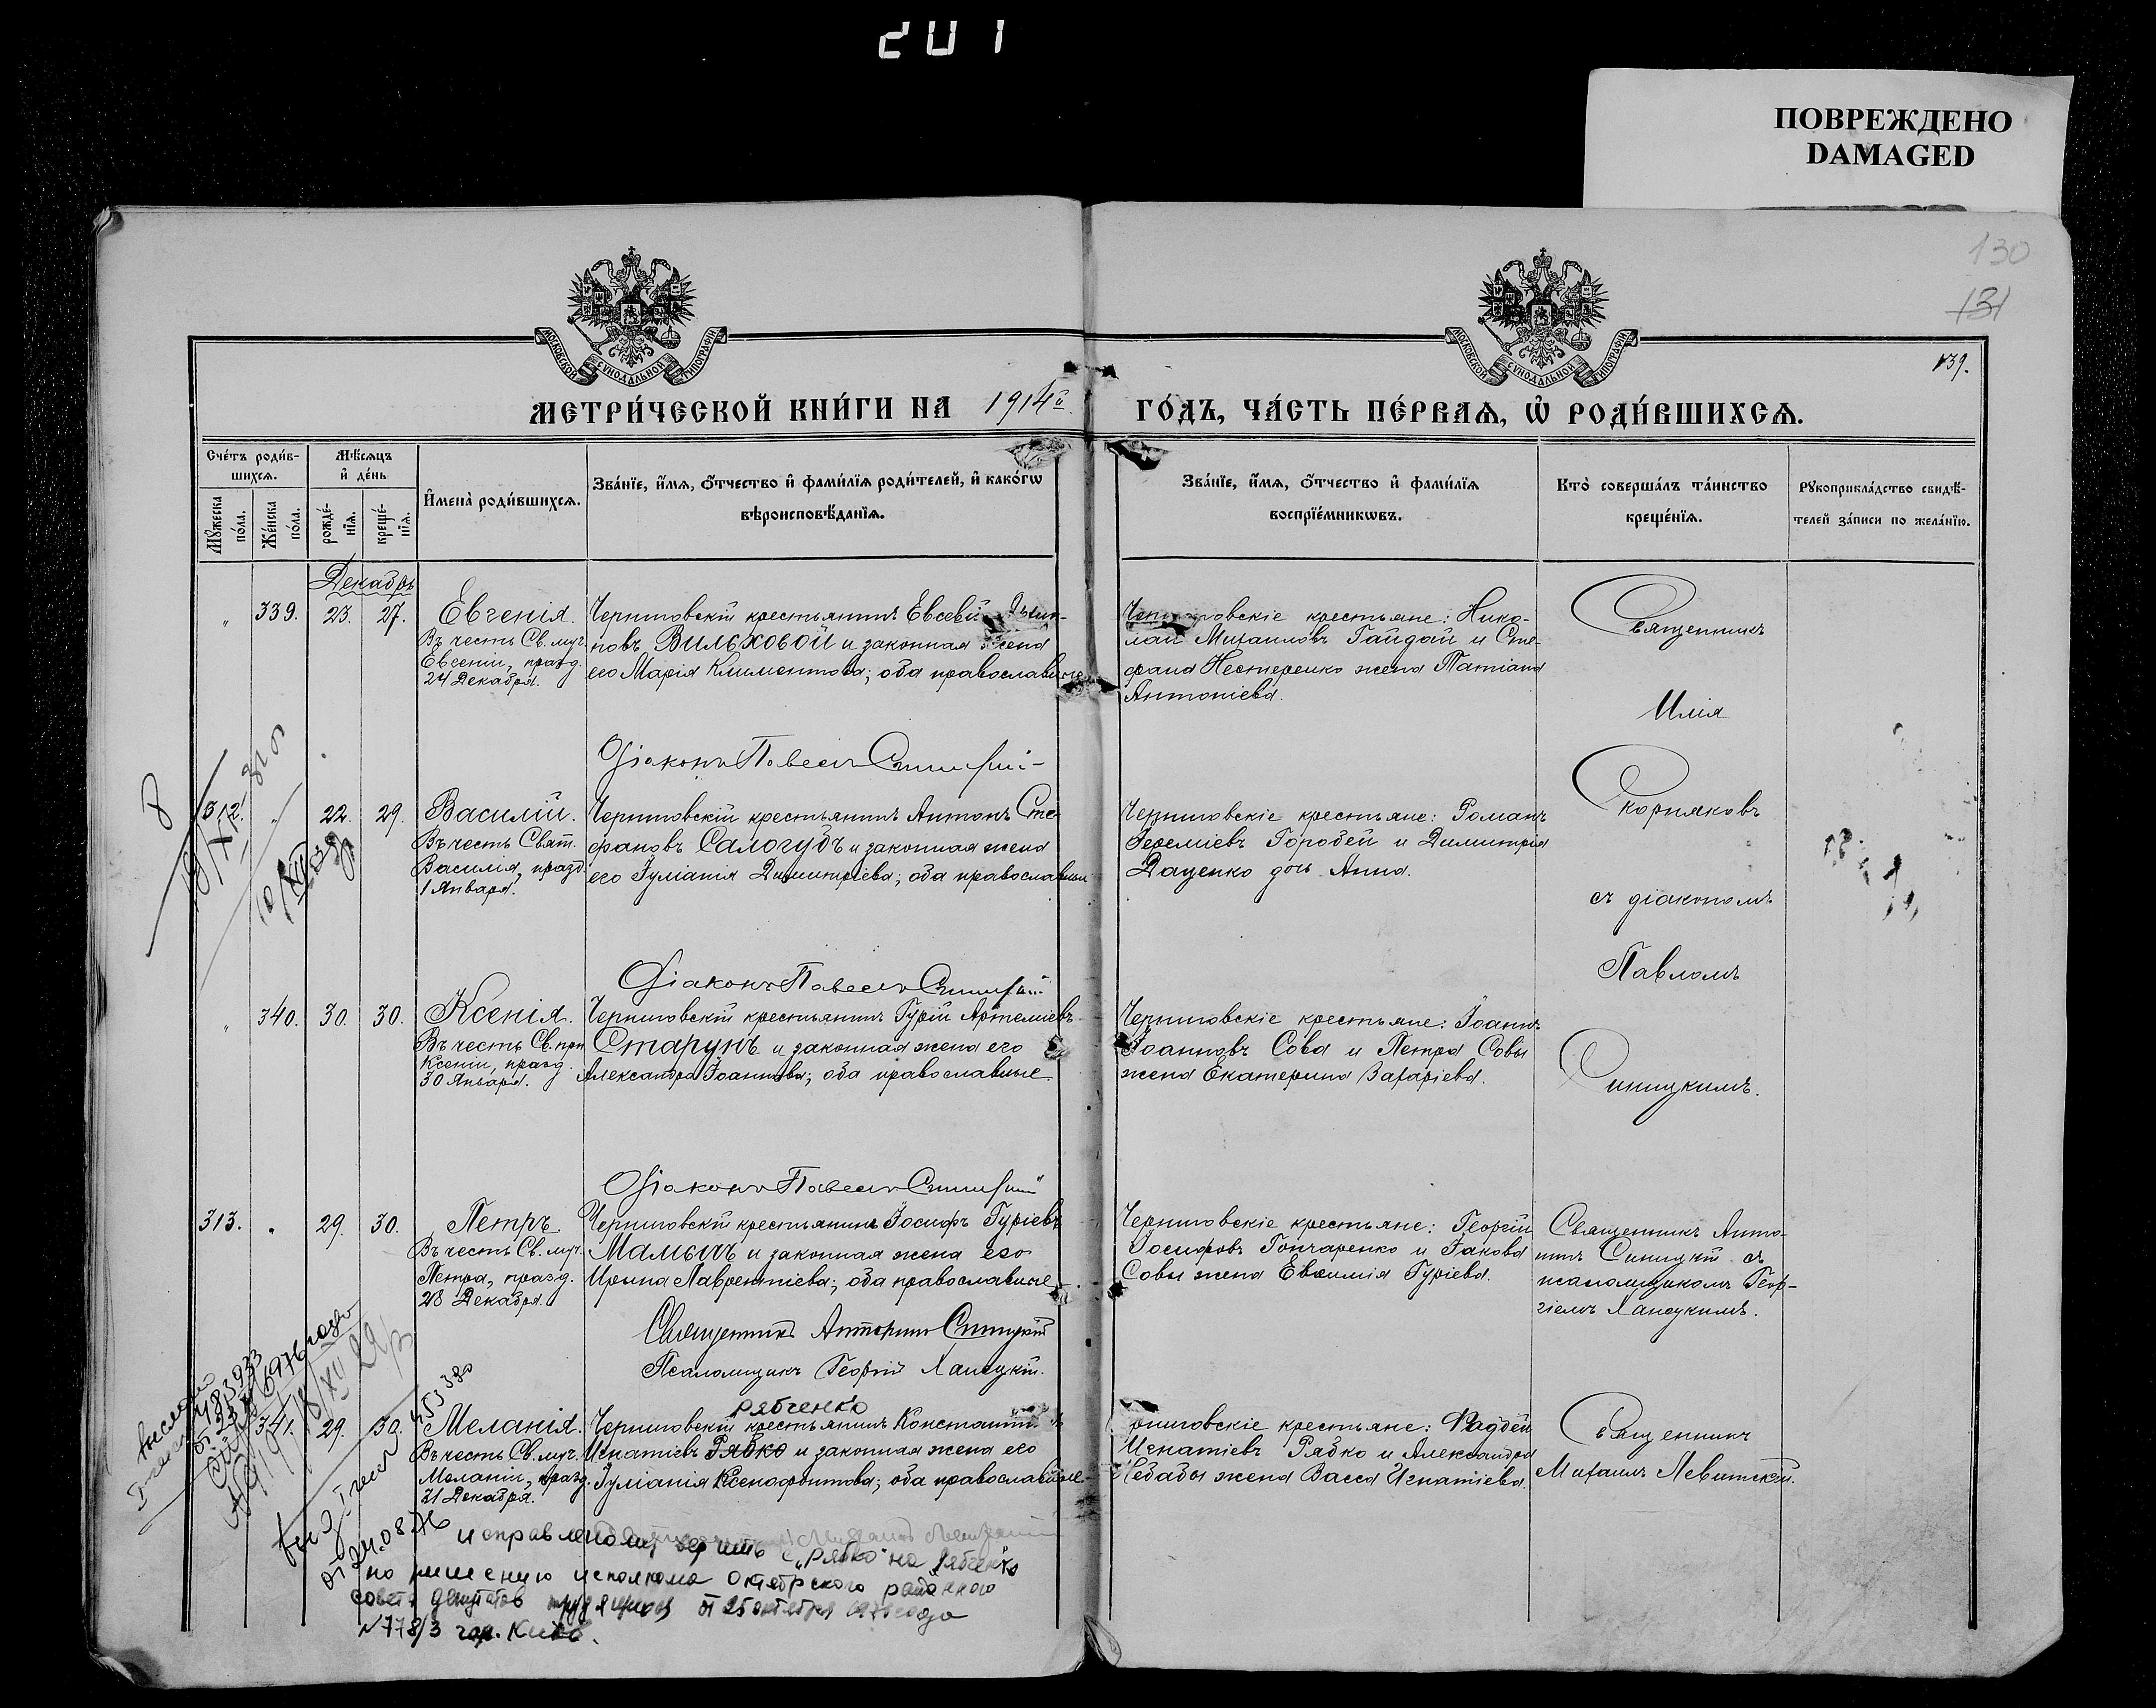 201
ПОВРЕЖДЕНО
DAMAGED
130
131
139.
МОСКОВСКОЙ СѴНОДАЛЬНОЙ ТИПОГРАФІИ
МОСКОВСКОЙ СѴНОДАЛЬНОЙ ТИПОГРАФІИ
МЕТРИ́ЧЕСКОЙ КНИ́ГИ НА 1914й
ГО́ДЪ, ЧА́СТЬ ПЕ́РВАѦ, Ѡ҆ РОДИ́ВШИХСѦ.
Сче́тъ роди́в-
шихсѧ.
Мꙋ́жеска по́ла.
Же́нска по́ла.
Мѣ́сѧцъ
и҆ де́нь
рожде́-
нїѧ.
креще́-
нїѧ.
И҆мена̀ роди́вшихсѧ.
Зва́нїе, и҆́мѧ, ѻ҆́тчество и҆ фами́лїѧ роди́телей, и҆ како́гѡ
вѣроисповѣ́данїѧ.
Зва́нїе, и҆́мѧ, ѻ҆́тчество и҆ фами́лїѧ
воспрїе́мникѡвъ.
Кто̀ соверша́лъ та́инство
креще́нїѧ.
Рꙋкоприкла́дство свидѣ́-
телей за́писи по жела́нїю.
Декабрь
" 339. 23. 27. Евгенія.
Въ честь Св. муч.
Евгеніи, празд.
24 Декабря.
Черниговскій крестьянинъ Евсевій
новъ Вильховой и законная жена
его Марія Климентова; оба православные
Черниговскіе крестьяне: Нико-
лай Михаиловъ Гайдай и Сте-
фана Нестеренко жена Татіана
Антоніева.
Священникъ
Илія
Скорняковъ
съ діакономъ
Павломъ
Синицкимъ.
Діаконъ Павелъ Синицкій
8
312. " 22. 29. Василій.
Въ честь Свят.
Василія, празд.
1 Января.
Черниговскій крестьянинъ Антонъ Сте-
фановъ Салогубъ и законная жена
его Іуліанія Димитріева; оба православные
Черниговскіе крестьяне: Романъ
Іереміевъ Горобей и Димитрія
Даценко дочь Анна.
Діаконъ Павелъ Синицкій
" 340. 30. 30. Ксенія.
Въ честь Св. прп.
Ксеніи, празд.
30 Января.
Черниговскій крестьянинъ Гурій Артеміевъ
Старунъ и законная жена его
Александра Іоаннова; оба православные.
Черниговскіе крестьяне: Іоаннъ
Іоанновъ Сова и Петра Совы
жена Екатерина Захаріева.
Діаконъ Павелъ Синицкій
313. " 29. 30. Петръ.
Въ честь Св. муч.
Петра, празд.
28 Декабря.
Черниговскій крестьянинъ Іосифъ Гуріевъ
Мамычъ и законная жена его
Ирина Лаврентіева; оба православные
Черниговскіе крестьяне: Георгій
Іосифовъ Гончаренко и Іакова
Совы жена Евѳимія Гуріева.
Священникъ Анто-
нинъ Синицкій съ
псаломщикомъ Геор-
гіемъ Ханецкимъ.
Священникъ Антонинъ Синицкій
Псаломщикъ Георгій Ханецкій.
341. 29. 30. Меланія.
Въ честь Св. муч.
Меланіи, празд.
31 Декабря.
Рябченко
Черниговскій крестьянинъ Константинъ
Игнатіевъ Рябко и законная жена его
Іуліанія Ксенофонтова; оба православные.
Черниговскіе крестьяне: Фаддей
Игнатіевъ Рябко и Александра
Небабы жена Васса Игнатіева.
Священникъ
Михаилъ Левитскій.
исправленому верить с "Рябко" на Рябченко
по решению исполкома Октябрского районного
совета депутатов трудящихся от 25 октября года
№778/3 гор. Киев.